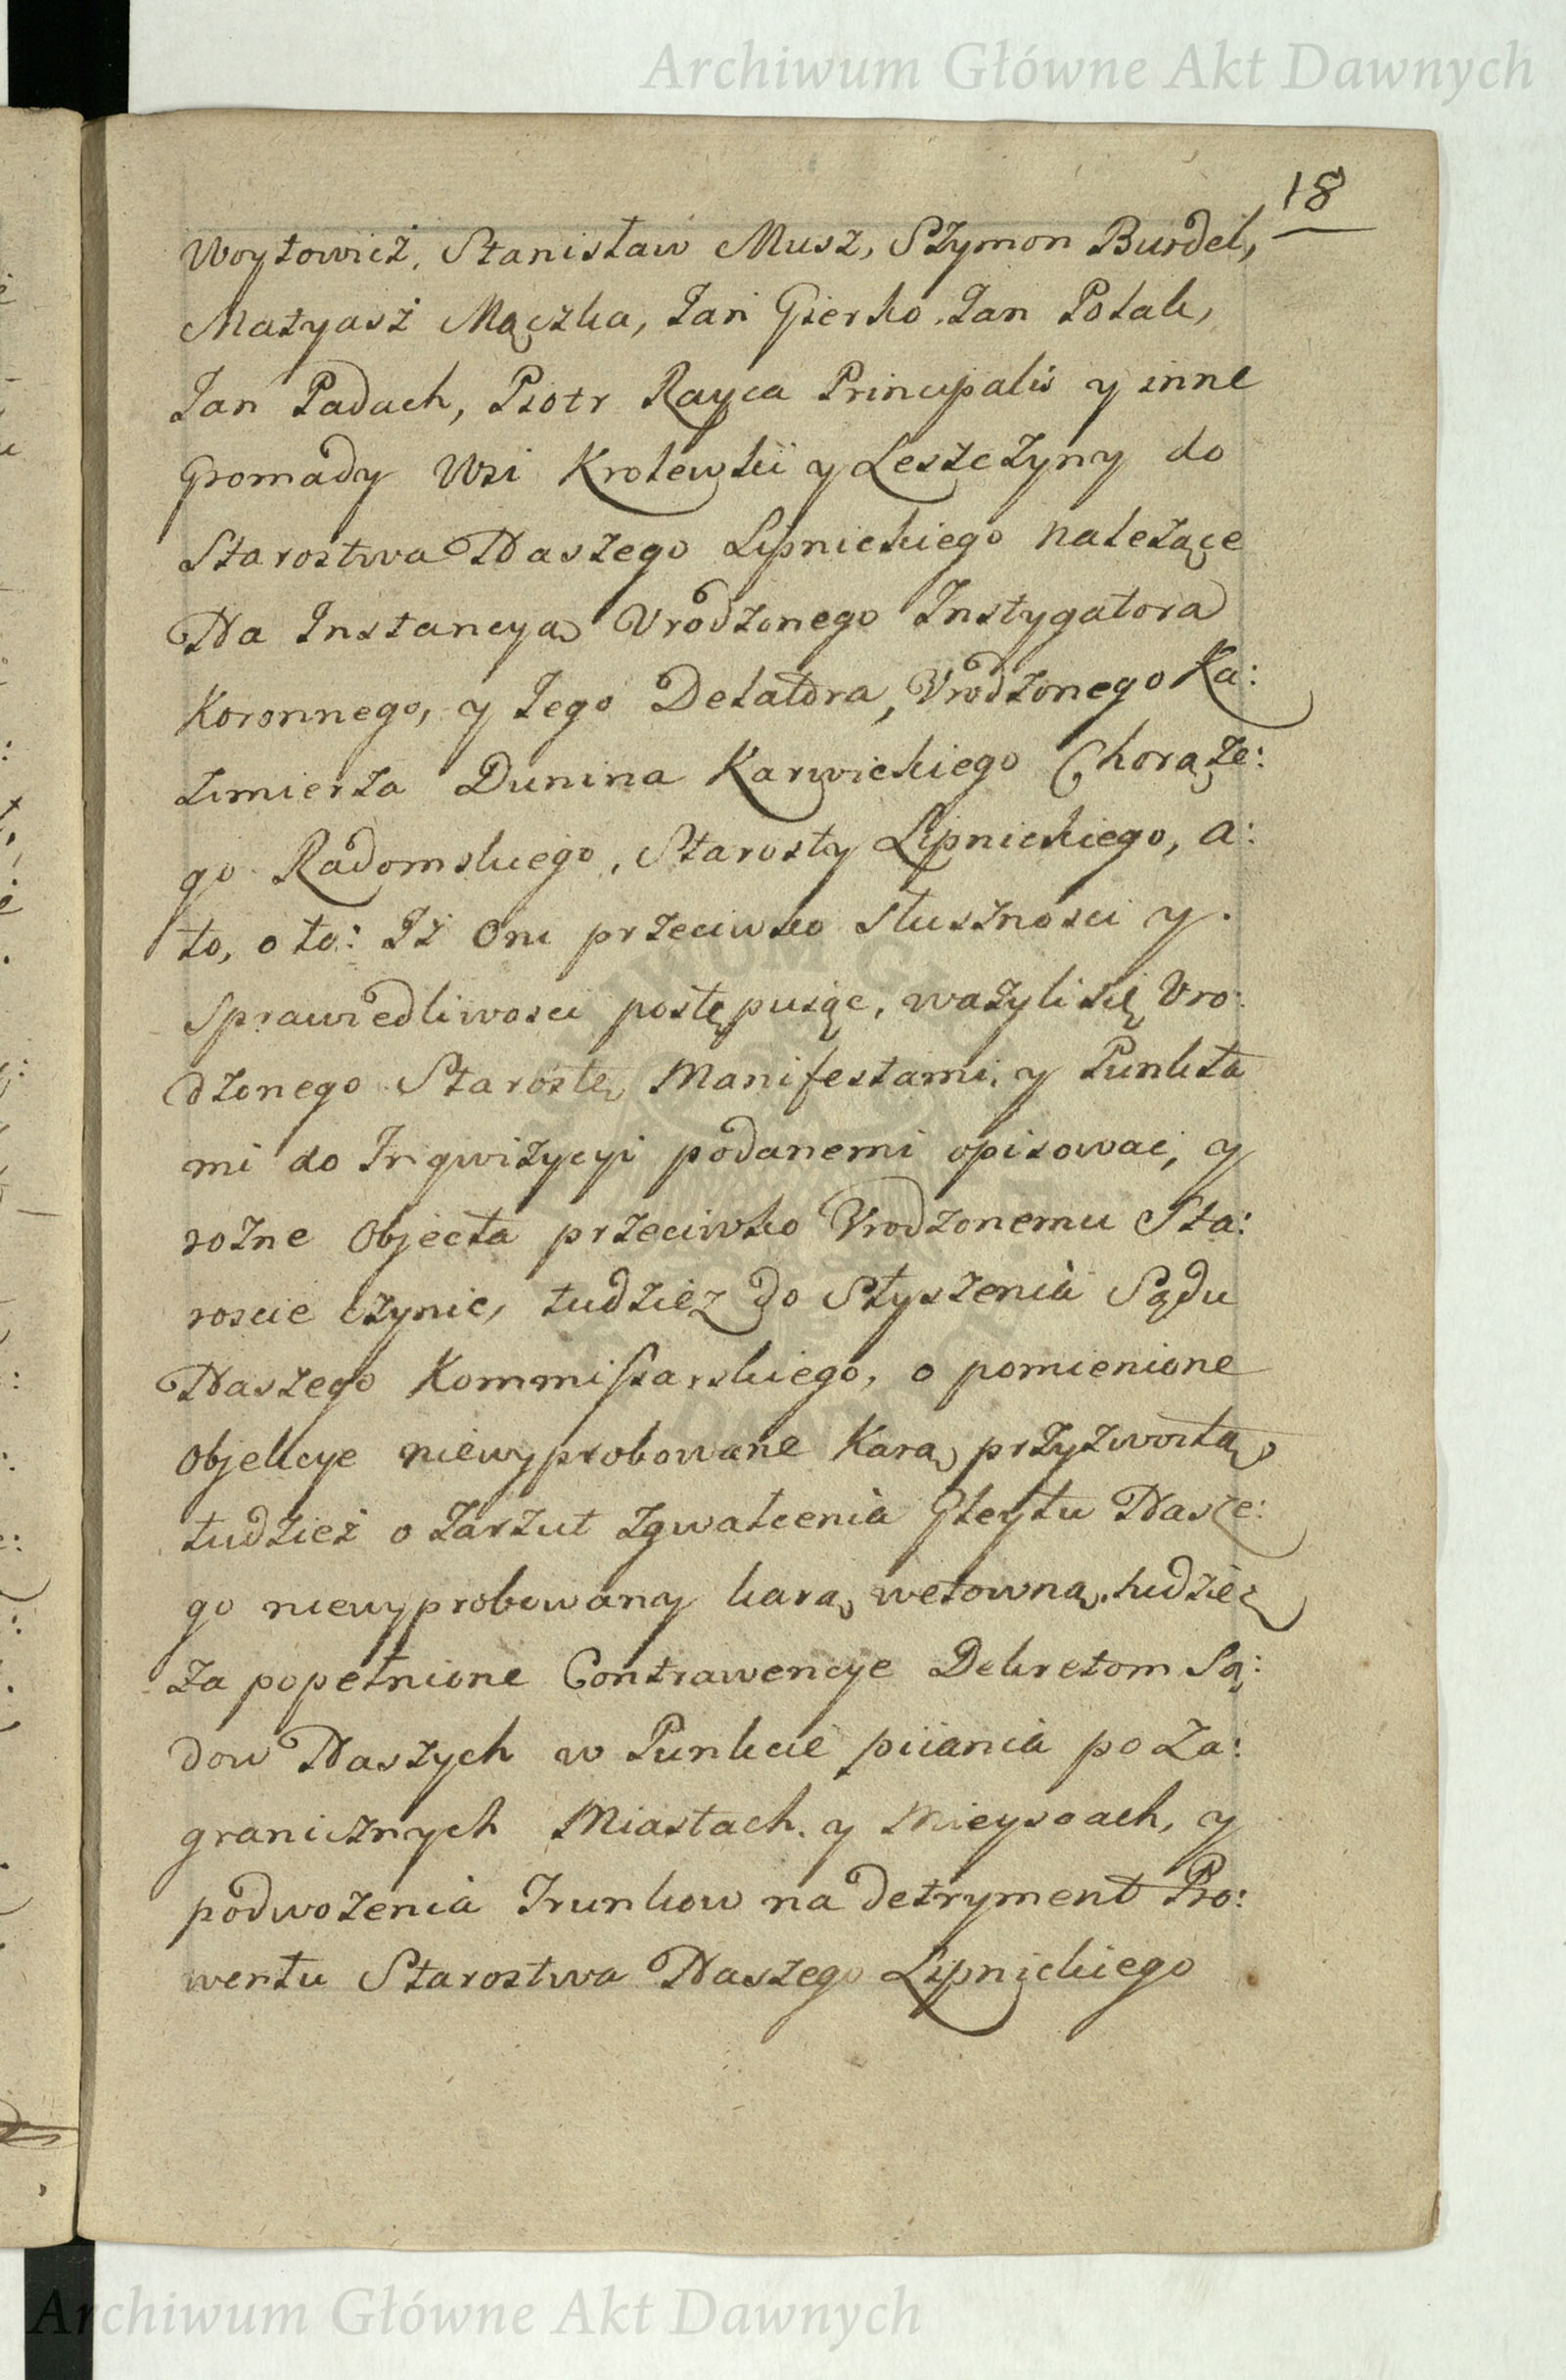 Archiwum Główne Akt Dawnych
18
Woytowicż, Stanisław Musz, Szymon Burdel,
Matyasż Mączka, Jan Gierko, Jan Polak,
Jan Padach, Piotr Rayca Principalis y inne
Gromady Wsi Krolewkii y Leszczyny do
Starostwa Naszego Lipnickiego należące
Na Instancyą Vrodzonego Instygatora
Koronnego, y Jego Delatora, Vrodzonego Ka:
zimierza Dunina Karwickiego Chorąże:
go Radomskiego, Starosty Lipnickiego, a:
to, o to: Iż Oni przeciwko słuszności y
sprawiedliwosci postępuiąc, ważyli się Vro:
dzonego Starostę Manifestami, y Punkta
mi do Inqwizycyi podanemi opisować, y
rożne Objecta przeciwko Vrodzonemu Sta:
roscie czynic, tudzież do Słyszenia Sądu
Naszego Kommissarskiego, o pomienione
Objekcye niewyprobowane Karą przyzwoitą,
tudzież o Zarzut Zgwałcenia Gleytu Nasze:
go niewyprobowany karą wetowną, tudzież
Za popełnione Contrawencye Dekretom Są:
dow Naszych w Punkcie piiania po Za:
granicznych Miastach y Mieyscach, y
podwożenia Trunkow na detryment Pro:
wentu Starostwa Naszego Lipnickiego
Archiwum Główne Akt Dawnych